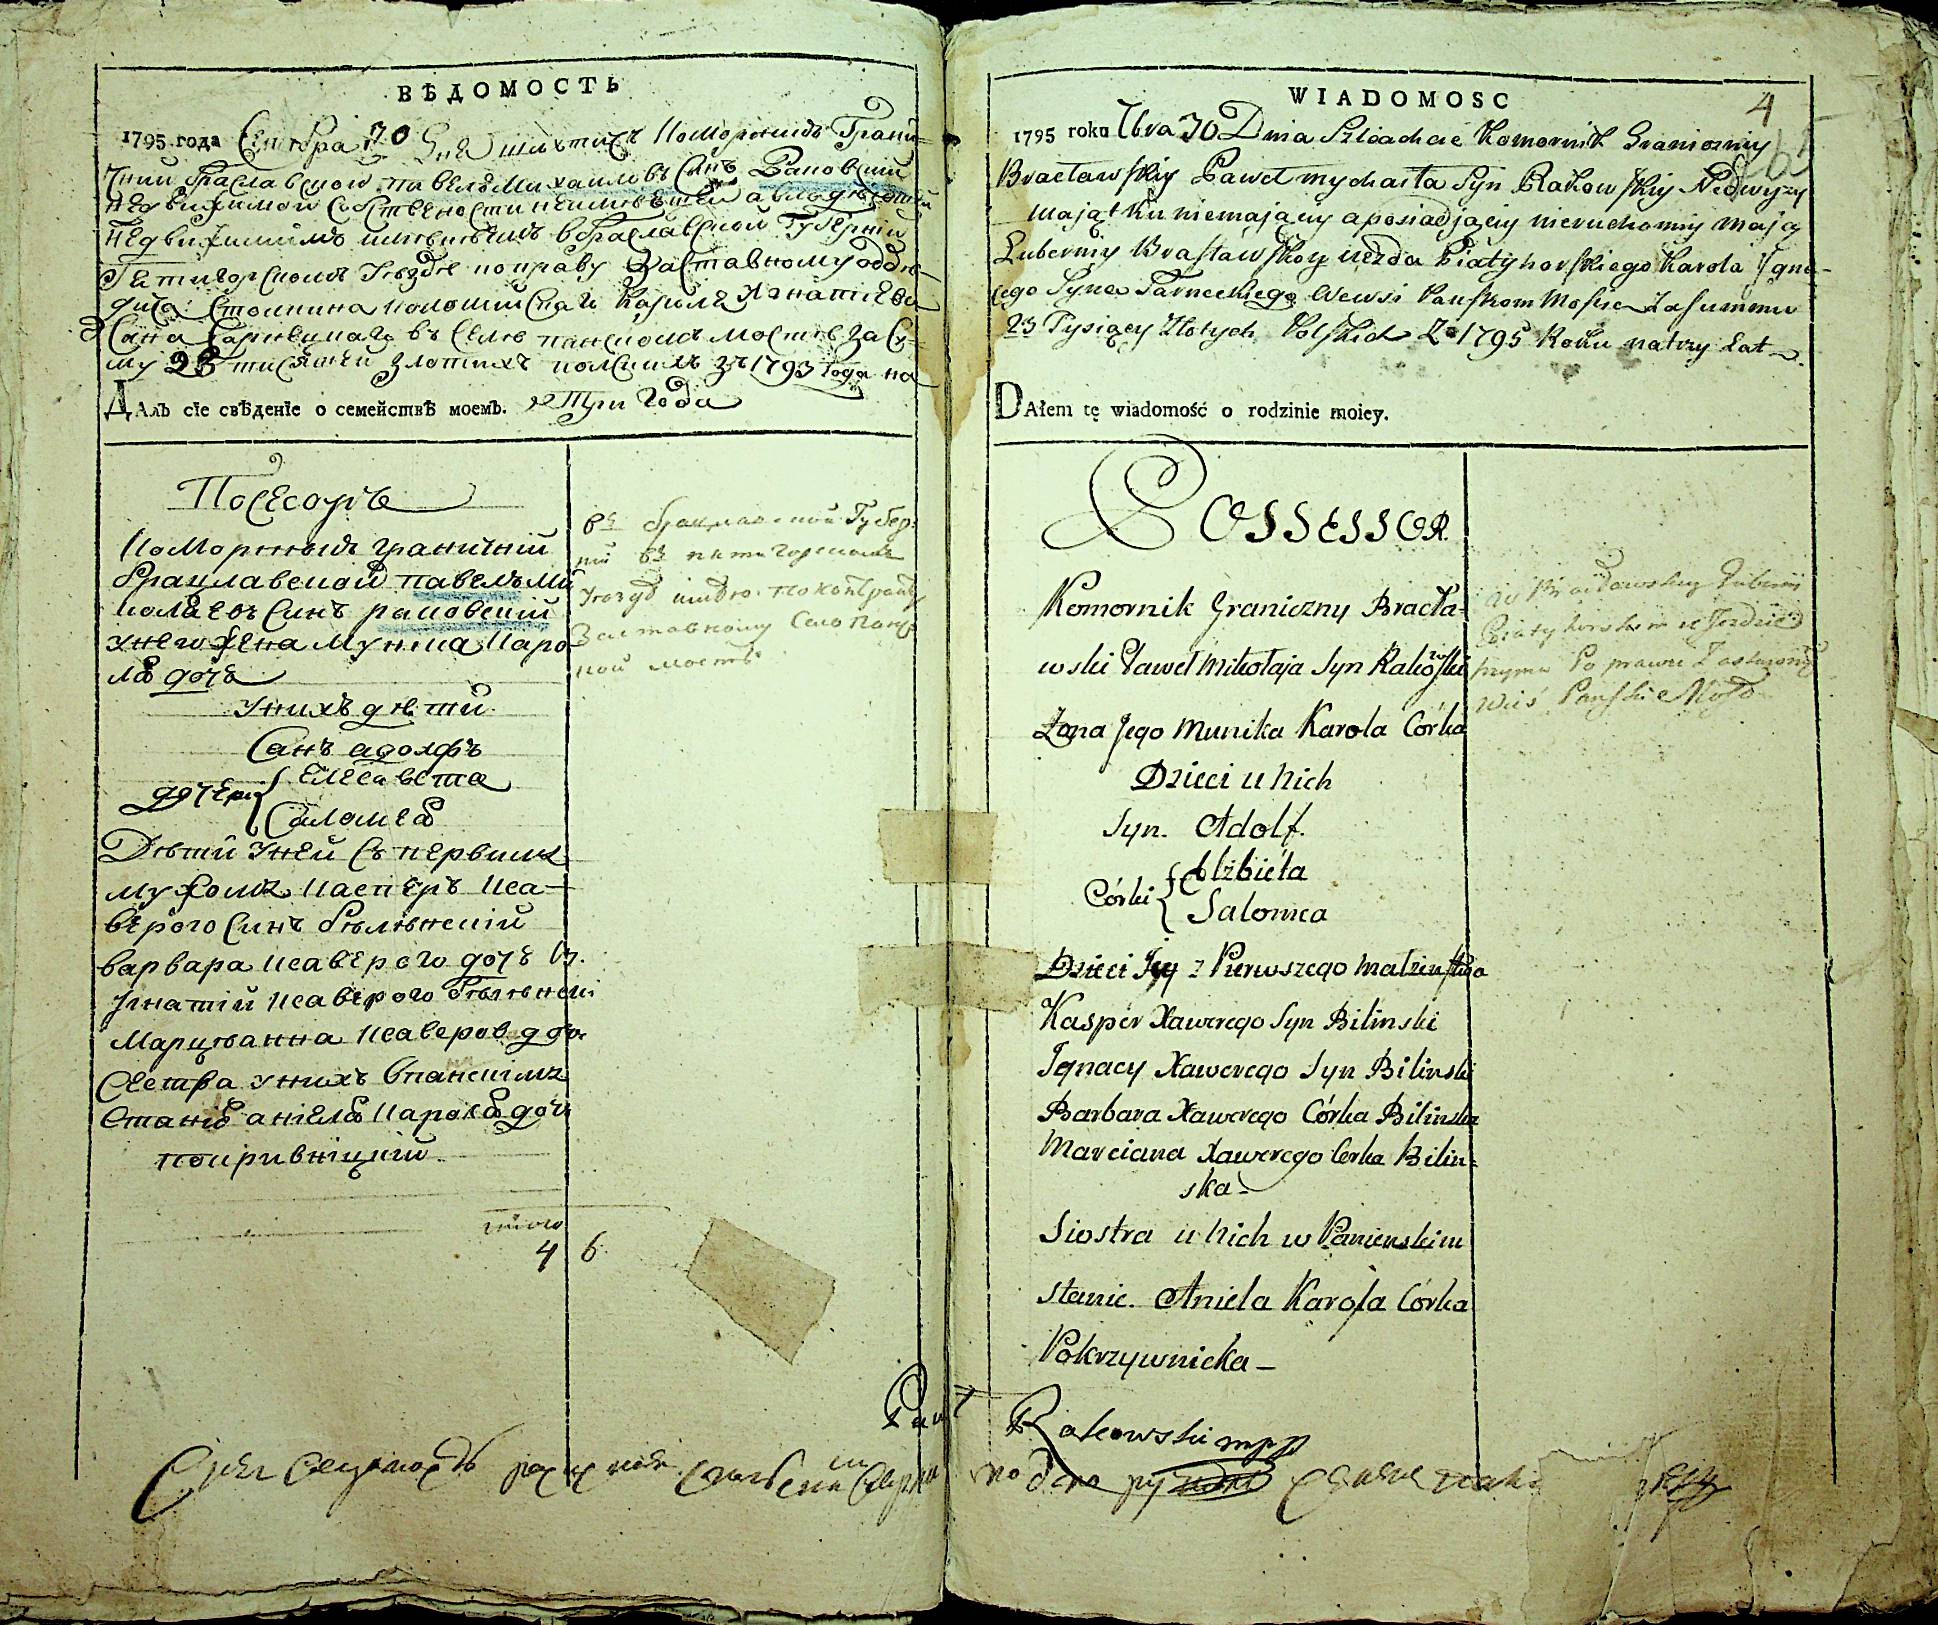 ВѢДОМОСТЬ
1795 года Сентебра 30 дня шляхтичъ Коморникъ Грани-
чний Браславской Павелъ Михаиловъ Синъ Раковский
недвижимой собствености неимѣющей а владѣющий
недвижимимъ имѣниемъ в Браславской Губернии
Петигорскомъ Уездѣ по праву Заставному од
Столника Карола Игнатиева
Сина Тарнецкаго въ Селѣ панскомъ мостѣ за Су-
му 23 тисячей злотихъ полскихъ зъ 1793 Года на
Далъ сіе свѣденіе о семействѣ моемъ. Три Года
Посесоръ
Коморникъ граничний
Брацлавской павелъ ми
колаевъ Синъ раковский
унего жена Муника Каро
ля дочь
Унихъ дѣти
Синъ адолфъ
дочери { Елисавета
Саломея
Дѣти Уней Съ первимъ
мужомъ Касперъ Кса-
верого Синъ Бѣлѣнский
варвара Ксаверого дочъ Бѣ.
Игнатий Ксаверого Бѣлѣнски
Марцыанна Ксаверова до.
Сестра унихъ впанскимъ
Стания аниеля Кароля дочь
покривницкий
въ Брацлавской Губер-
нии въ пятигорскомъ
Уездѣ имѣю по контракту
Заставному Село Панс
кой мостъ
итого
4 6
WIADOMOSC
4
1795 roku 7bra 30 Dnia Szlachcic Komornik Graniczny
Bracławskiy Paweł mychaiła Syn Rakowskiy Nedwyzy
maiątku niemaiący a posiadjący nieruchomy mają
Guberniy Brasławskoy uezda Piatyhorskiego Karola Igna-
cego Syna Tarneckiego Wewsi Panskom Moscie Zasummu
23 Tysiący Złotych Polskich Z 1795 Roku na trzy Lat
DAłem tę wiadomość o rodzinie moiey.
POSSESSOR
Komornik Graniczny Bracła-
wski Paweł Mikołaja Syn Rakowski
Zona Jego Munika Karola Córka
Dzieci u Nich
Syn. Adolf.
Córki { Elżbieta
Salomea
Dzieci Jey z Pierwszego małzeństwa
Kasper Xawerego Syn Bilinski
Ignacy Xawerego Syn Bilinski
Barbara Xawerego Córka Bilinska
Marciana Xawerego Corka Bilin-
ska-
Siostra u Nich w Panienskim
stanie. Aniela Karola Córka
Pokrzywnicka-
w Bracławskiey Gubernii
Piatyhorskim uezdzie
trzyma Po prawu Zastawnym
Wieś Panskie Mosto
Paweł Rakowski mpp